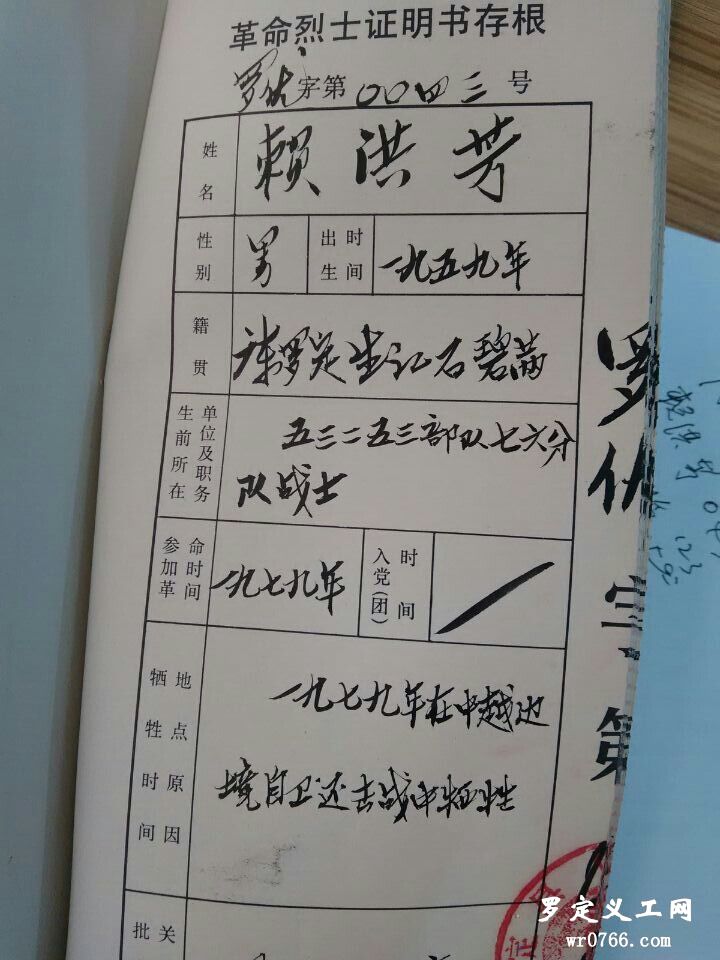 革命烈士证明书存根
罗优字第〇〇四三号
姓名 赖洪芳
性别 男 出生时间 一九五九年
籍贯 罗定 石碧
生前所在单位及职务 五三二五三部队七六分
队战士
参加革命时间 一九七九年 入党(团)时间
牺牲时间地点原因 一九七九年在中越边
境自卫还击战中牺牲
批 关
罗
优
字
第
罗定义工网
wr0766.com